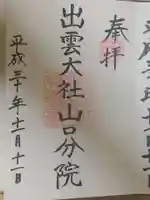 奉拝
出雲大社山口分院
平成三十年十一月十一日